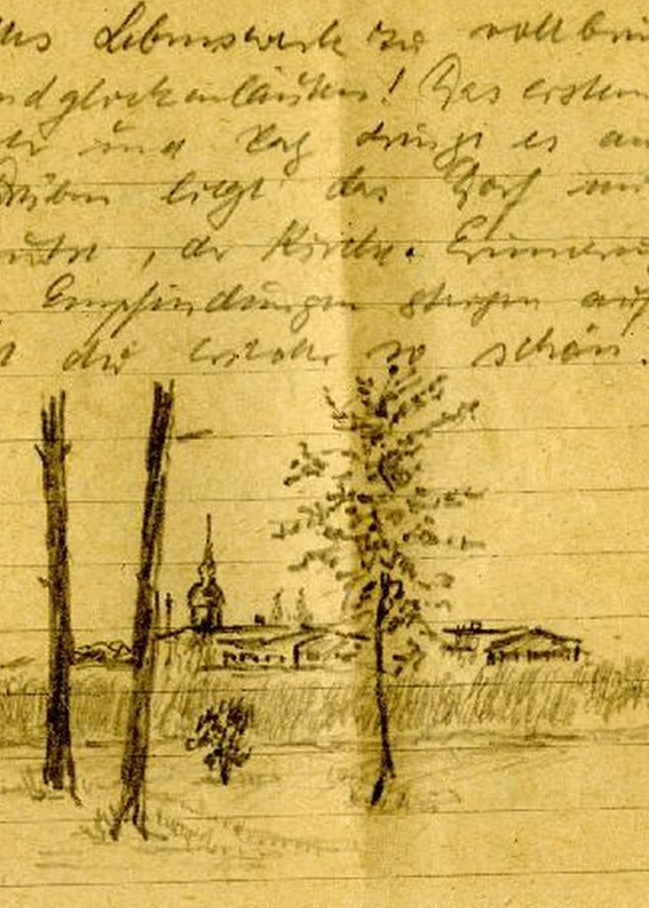 Lebenswerk zu vollbrin
ndglockenläuten! Das erstem
und Tag dringt es an
Drüben liegt das Dorf mi
, der Kirche. Erinneru
Empfindungen steigen auf
die so schön.